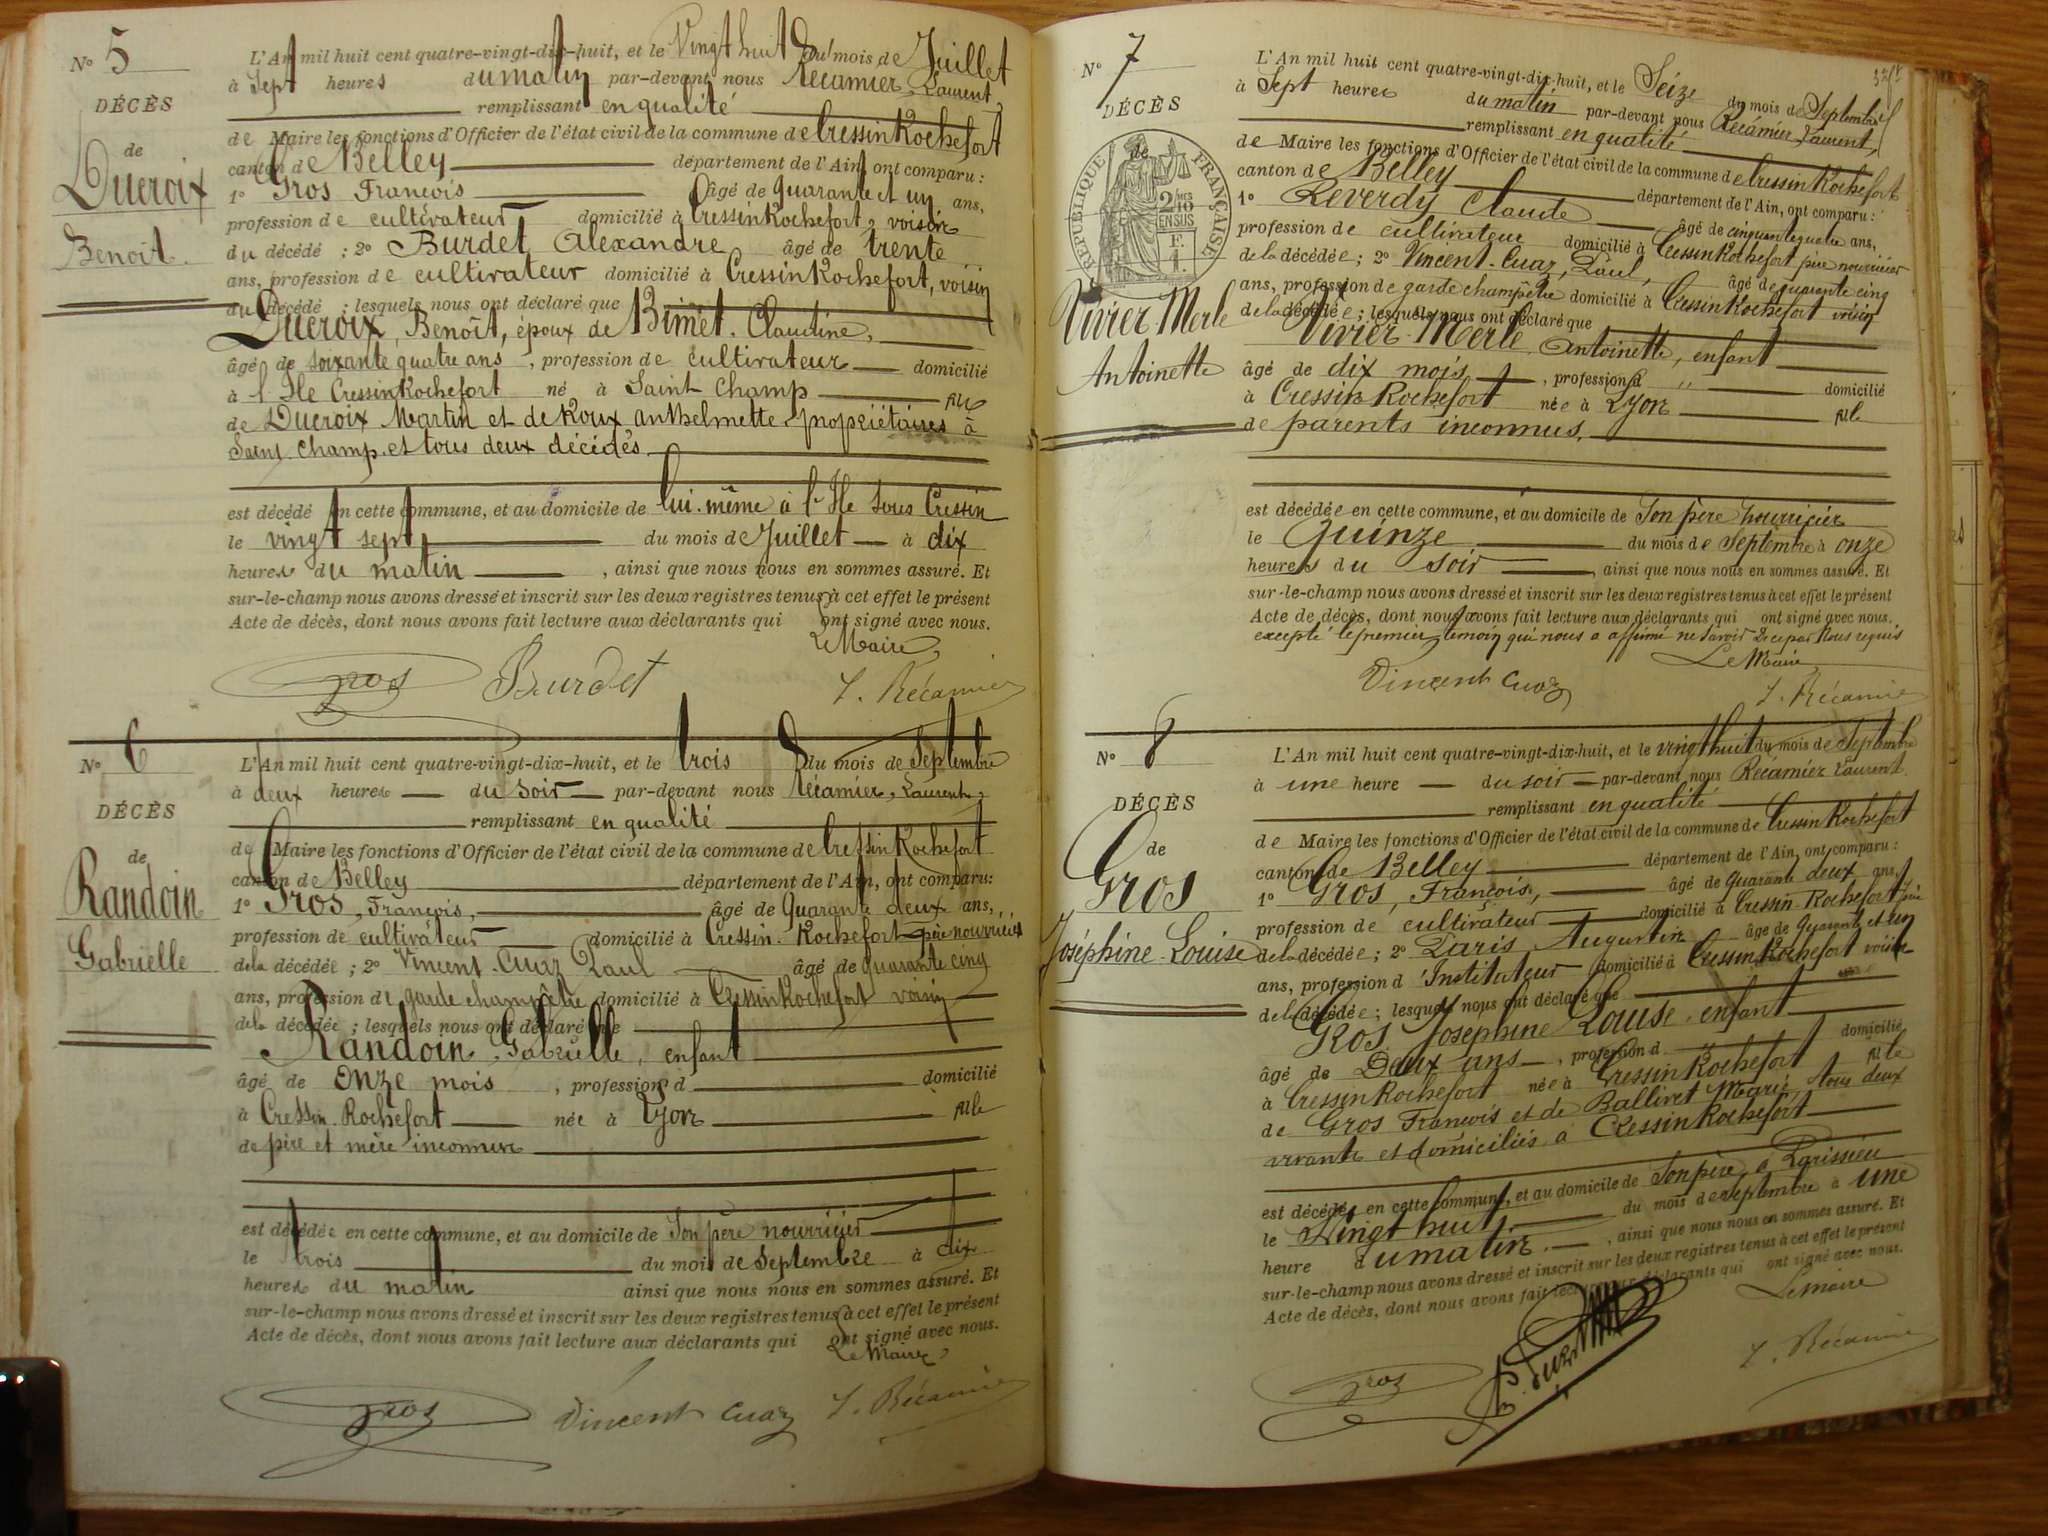 N° 5
DÉCÈS
de
Ducroix
Benoit.
L'An mil huit cent quatre-vingt-dix-huit, et le Vingt huit du mois de Juillet
à Sept heures du matin par-devant nous Récamier, Laurent,
remplissant en qualité
de Maire les fonctions d'Officier de l'état civil de la commune de Cressin Rochefort
canton de Belley département de l'Ain, ont comparu :
1° Gros François âgé de quarante et un ans,
profession de cultivateur domicilié à Cressin Rochefort, voisin
du décédé ; 2° Burdet Alexandre âgé de trente
ans, profession de cultivateur domicilié à Cressin Rochefort, voisin
du décédé ; lesquels nous ont déclaré que
Ducroix, Benoît, époux de Bimet Claudine,
âgé de soixante quatre ans, profession de cultivateur domicilié
à l'Ile Cressin Rochefort né à Saint Champ fils
de Ducroix Martin et de Roux anthelmette propriétaires à
Saint champ et tous deux décédés
est décédé en cette commune, et au domicile de lui-même à l'Ile sous Cressin
le vingt sept du mois de Juillet à dix
heures du matin, ainsi que nous nous en sommes assuré. Et
sur-le-champ nous avons dressé et inscrit sur les deux registres tenus à cet effet le présent
Acte de décès, dont nous avons fait lecture aux déclarants qui ont signé avec nous.
Le Maire,
Gros Burdet L. Récamier
N° 6
DÉCÈS
de
Randoin
Gabrielle
L'An mil huit cent quatre-vingt-dix-huit, et le trois du mois de Septembre
à deux heures du soir par-devant nous Récamier, Laurent,
remplissant en qualité
de Maire les fonctions d'Officier de l'état civil de la commune de Cressin Rochefort
canton de Belley département de l'Ain, ont comparu :
1° Gros, François, âgé de Quarante deux ans,
profession de cultivateur domicilié à Cressin-Rochefort père nourricier
de la décédée ; 2° Vincent-Cuaz Paul âgé de quarante cinq
ans, profession de garde champêtre domicilié à Cressin Rochefort voisin
de la décédée ; lesquels nous ont déclaré que
Randoin, Gabrielle, enfant
âgé de onze mois, profession d domicilié
à Cressin-Rochefort née à Lyon fille
de père et mère inconnus
est décédée en cette commune, et au domicile de Son père nourricier
le trois du mois de Septembre à dix
heures du matin ainsi que nous nous en sommes assuré. Et
sur-le-champ nous avons dressé et inscrit sur les deux registres tenus à cet effet le présent
Acte de décès, dont nous avons fait lecture aux déclarants qui ont signé avec nous.
Le Maire,
Gros Vincent Cuaz L. Récamier
N° 7
DÉCÈS
de
RÉPUBLIQUE FRANÇAISE
2 DMES 1/2 EN SUS
Vivier-Merle
Antoinette
L'An mil huit cent quatre-vingt-dix-huit, et le Seize du mois de Septembre
à Sept heures du matin par-devant nous Récamier Laurent,
remplissant en qualité
de Maire les fonctions d'Officier de l'état civil de la commune de Cressin Rochefort
canton de Belley département de l'Ain, ont comparu :
1° Reverdy Claude âgé de cinquante quatre ans,
profession de cultivateur domicilié à Cressin Rochefort père nourricier
de la décédée ; 2° Vincent-Cuaz, Paul, âgé de quarante cinq
ans, profession de garde champêtre domicilié à Cressin Rochefort voisin
de la décédée ; lesquels nous ont déclaré que
Vivier-Merle, Antoinette, enfant
âgé de dix mois, profession d " domicilié
à Cressin Rochefort née à Lyon fille
de parents inconnus.
est décédée en cette commune, et au domicile de Son père nourricier
le Quinze du mois de Septembre à onze
heures du soir, ainsi que nous nous en sommes assuré. Et
sur-le-champ nous avons dressé et inscrit sur les deux registres tenus à cet effet le présent
Acte de décès, dont nous avons fait lecture aux déclarants qui ont signé avec nous.
excepté le premier témoin qui nous a affirmé ne savoir de ce par nous requis
Le Maire
Vincent Cuaz L. Récamier
N° 8
DÉCÈS
de
Gros
Joséphine-Louise
L'An mil huit cent quatre-vingt-dix-huit, et le vingt huit du mois de Septembre
à une heure du soir par-devant nous Récamier Laurent
remplissant en qualité
de Maire les fonctions d'Officier de l'état civil de la commune de Cressin Rochefort
canton de Belley département de l'Ain, ont comparu :
1° Gros, François, âgé de Quarante deux ans,
profession de cultivateur domicilié à Cressin-Rochefort père
de la décédée ; 2° Paris Augustin âgé de Quarante et un
ans, profession d'Instituteur domicilié à Cressin Rochefort voisin
de la décédée ; lesquels nous ont déclaré que
Gros Joséphine Louise, enfant
âgé de Deux ans, profession d domicilié
à Cressin Rochefort née à Cressin Rochefort fille
de Gros François et de Ballivet Marie, tous deux
vivants et domiciliés à Cressin Rochefort
est décédée en cette commune, et au domicile de Son père à Parissieu
le Vingt huit du mois de Septembre à une
heure du matin, ainsi que nous nous en sommes assuré. Et
sur-le-champ nous avons dressé et inscrit sur les deux registres tenus à cet effet le présent
Acte de décès, dont nous avons fait lecture aux déclarants qui ont signé avec nous.
Le maire
Gros L. Récamier